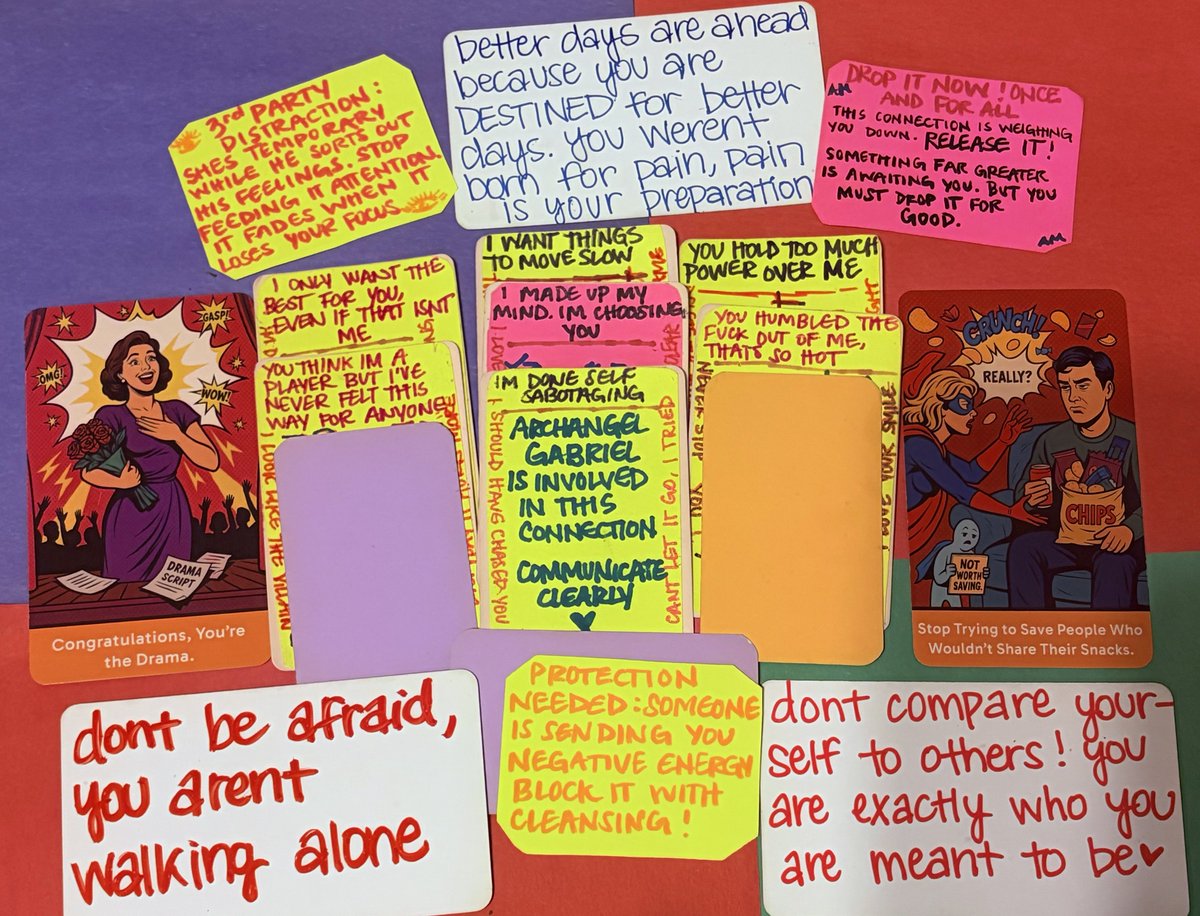 better days are ahead
because you are
DESTINED for better
days. you werent
born for pain, pain
is your preparation
3rd PARTY
DISTRACTION:
SHES TEMPORARY
WHILE HE SORTS OUT
HIS FEELINGS. STOP
FEEDING IT ATTENTION
IT FADES WHEN IT
LOSES YOUR FOCUS.
DROP IT NOW! ONCE
AND FOR ALL
THIS CONNECTION IS WEIGHING
YOU DOWN. RELEASE IT!
SOMETHING FAR GREATER
IS AWAITING YOU. BUT YOU
MUST DROP IT FOR
GOOD.
I ONLY WANT THE
BEST FOR YOU,
EVEN IF THAT ISNT
ME
YOU THINK IM A
PLAYER BUT I'VE
NEVER FELT THIS
WAY FOR ANYONE
I LOOK LIKE THE VILLAIN
I WANT THINGS
TO MOVE SLOW
I MADE UP MY
MIND. IM CHOOSING
YOU
IM DONE SELF
SABOTAGING
ARCHANGEL
GABRIEL
IS INVOLVED
IN THIS
CONNECTION
COMMUNICATE
CLEARLY
I SHOULD HAVE CHASED YOU
CANT LET IT GO, I TRIED
YOU HOLD TOO MUCH
POWER OVER ME
YOU HUMBLED THE
FUCK OUT OF ME,
THATS SO HOT
YOUR SMILE
GASP!
OMG!
WOW!
DRAMA
SCRIPT
Congratulations, You're
the Drama.
CRUNCH!
REALLY?
CHIPS
NOT
WORTH
SAVING.
Stop Trying to Save People Who
Wouldn't Share Their Snacks.
dont be afraid,
you arent
walking alone
PROTECTION
NEEDED: SOMEONE
IS SENDING YOU
NEGATIVE ENERGY
BLOCK IT WITH
CLEANSING!
dont compare your-
self to others! you
are exactly who you
are meant to be